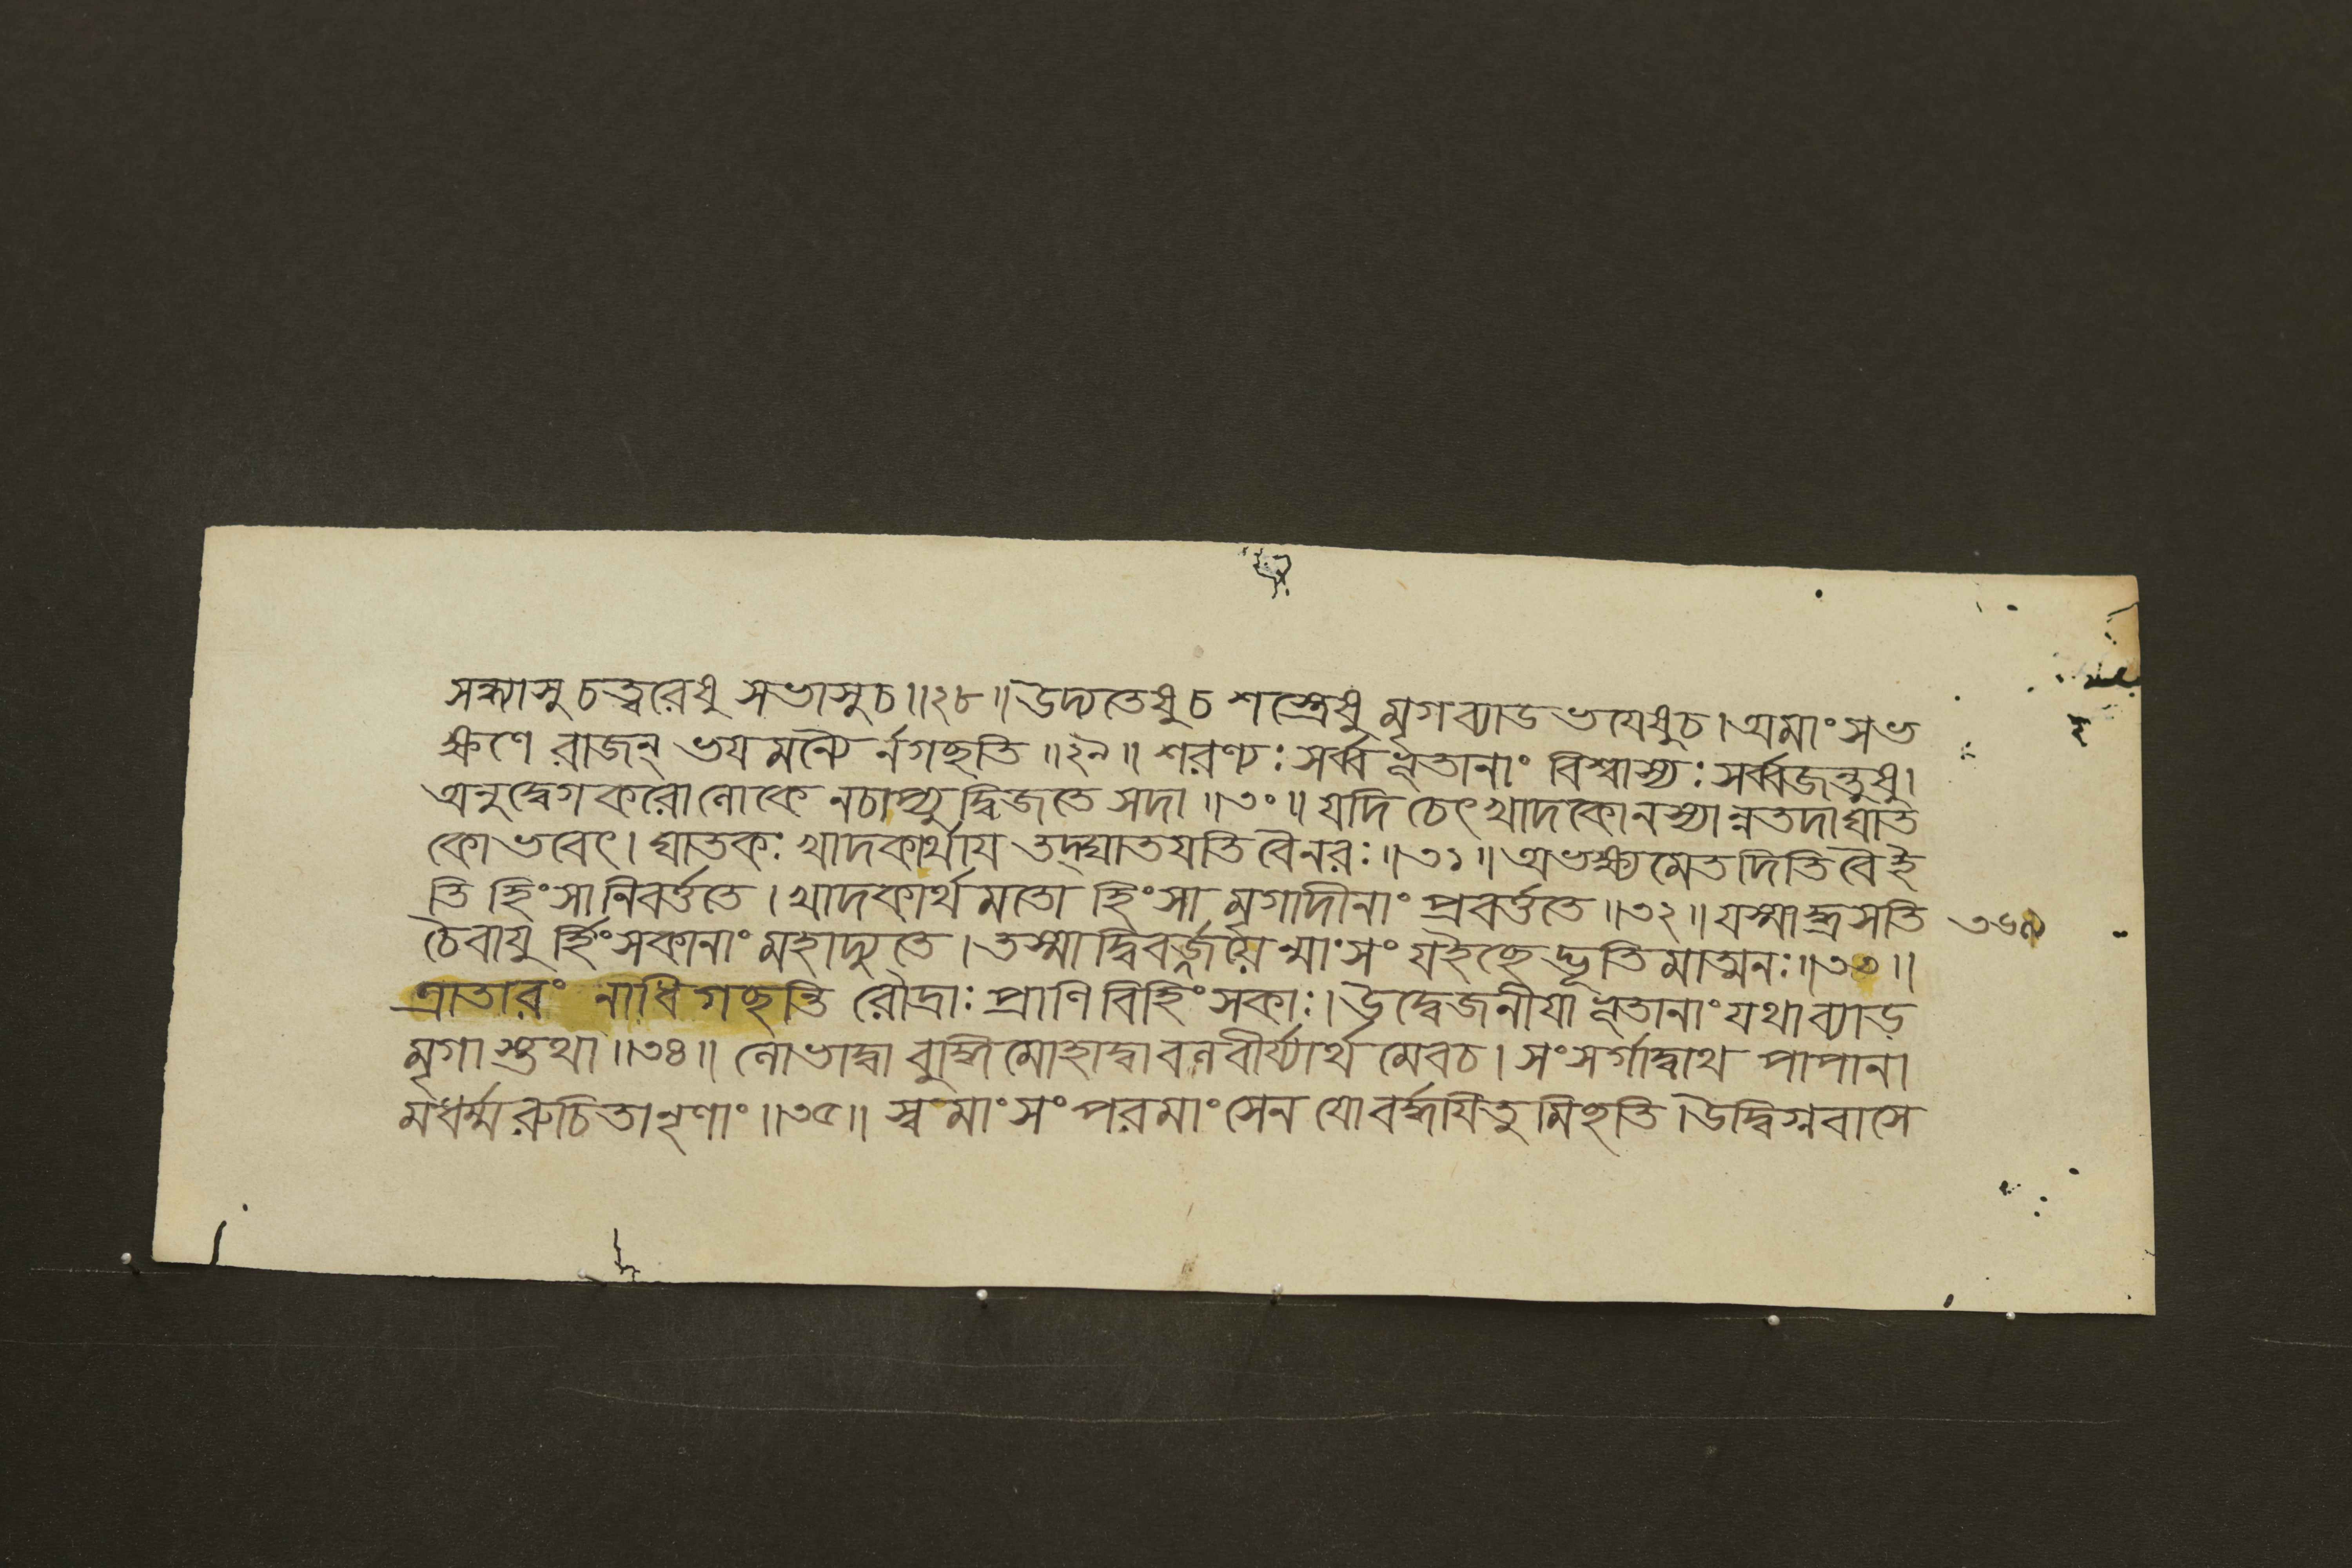 সন্ধ্যাসু চত্বরেষু সভাসু চ॥২৮॥ উদ্যতেষু চ শস্ত্রেষু মৃগব্যাড ভযেষু চ। অমাংসভ
ক্ষণে রাজন্ ভয মন্যৈ র্নগছতি॥২৯॥ শরণ্যঃ সর্ব্বভূতানাং বিশ্বাস্যঃ সর্ব্বজন্তুষু।
অনুদ্বেগ করোলোকে নচাপ্যুদ্বিজতে সদা॥৩০॥ যদি চেৎ খাদকো নস্যান্নতদা ঘাত
কো ভবেৎ। ঘাতকঃ খাদকার্থায তদ্ঘাতযতি বৈনরঃ॥৩১॥ অভক্ষ্যমেতদিতি বৈ ই
তি হিংসা নিবর্ত্ততে। খাদকার্থ মতো হিংসা মৃগাদীনাং প্রবর্ত্ততে॥৩২॥ যস্মাদ্গ্রসতি
চৈবাযু র্হিংসকানাং মহাদ্যুতে। তস্মাদ্বিবর্জ্জযেন্মাংসং যইছেদ্ভূতি মাত্মনঃ॥৩৩॥
ত্রাতারং নাধিগছন্তি রৌদ্রাঃ প্রাণিবিহিংসকাঃ। উদ্বেজনীযা ভূতানাং যথা ব্যাড়
মৃগাস্তথা॥৩৪॥ লোভাদ্বা বুদ্ধিমোহাদ্বা বলবীর্য্যার্থ মেবচ। সংসর্গাদ্বাথ পাপানা
মধর্ম্মরুচিতা নৃণাং॥৩৫॥ স্বমাংসং পরমাংসেন যো বর্দ্ধযিতু মিছতি। উদ্বিগ্নবাসে
৩৬৯